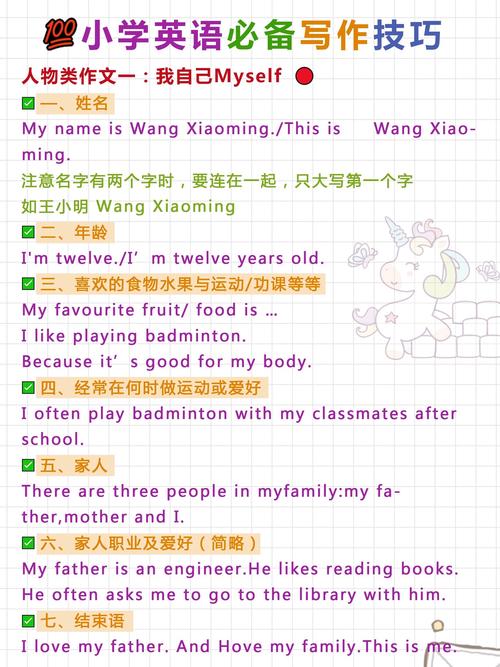 💯小学英语必备写作技巧
人物类作文一：我自己Myself
一、姓名
My name is Wang Xiaoming./This is Wang Xiao-
ming.
注意名字有两个字时，要连在一起，只大写第一个字
如王小明 Wang Xiaoming
二、年龄
I'm twelve./I’m twelve years old.
三、喜欢的食物水果与运动/功课等等
My favourite fruit/ food is …
I like playing badminton.
Because it’s good for my body.
四、经常在何时做运动或爱好
I often play badminton with my classmates after
school.
五、家人
There are three people in myfamily:my fa-
ther,mother and I.
六、家人职业及爱好（简略）
My father is an engineer.He likes reading books.
He often asks me to go to the library with him.
七、结束语
I love my father. And Hove my family.This is me.